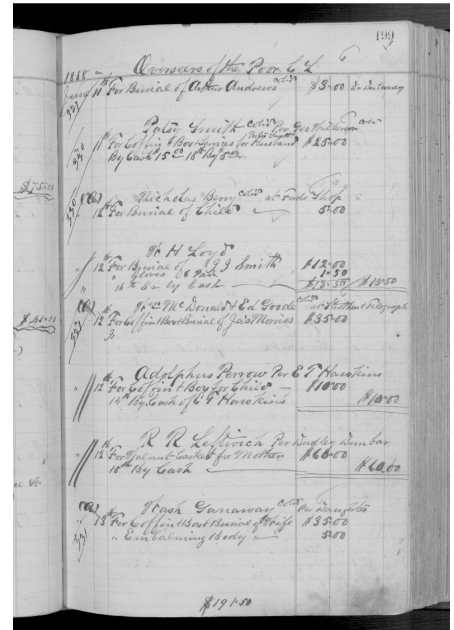 199
1888 Overseers of the Poor C L
June 11th For Burial of Arthur Andrews cold $3.00 Dr Delaney
Patsy Smith cold Per Geo Wilkerson cold
11th For Coffin & Box & Services for Husband $25.00
By Cash 15.00 18th By 5.00
Nicholas Berry cold at Fords Shop
12th For Burial of Child 5.00
W H Loyd
12th For Burial of J J Smith $12.00
" Gloves 6 Pair 1.50
14th Cr by Cash $13.50 $13.50
$75.00
Wm McDonald & Ed Goode cold at
12th For Coffin Box & Burial of Jas Morriss $35.00
Jr
Adolphus Perrow Per E T Hawkins
12th For Coffin & Box for Child $10.00
14th By Cash of E T Hawkins $10.00
R R Leftwich Per Dudley Dunbar
12th For Walnut Casket for Mother $60.00
16th By Cash $60.00
Wash Ganaway cold Per Daughter
13th For Coffin & Box & Burial of Wife $35.00
" Embalming Body 5.00
$191.50